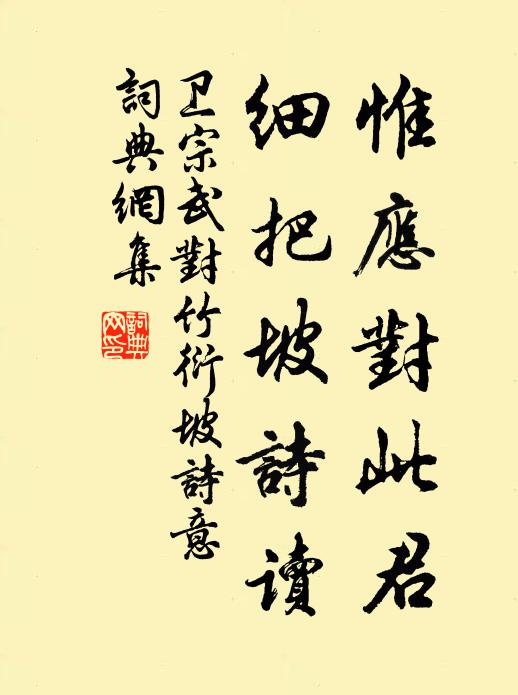 惟應對此君
細把坡詩讀
卫宗武對竹衍坡詩意
詞典網集
詞典網印